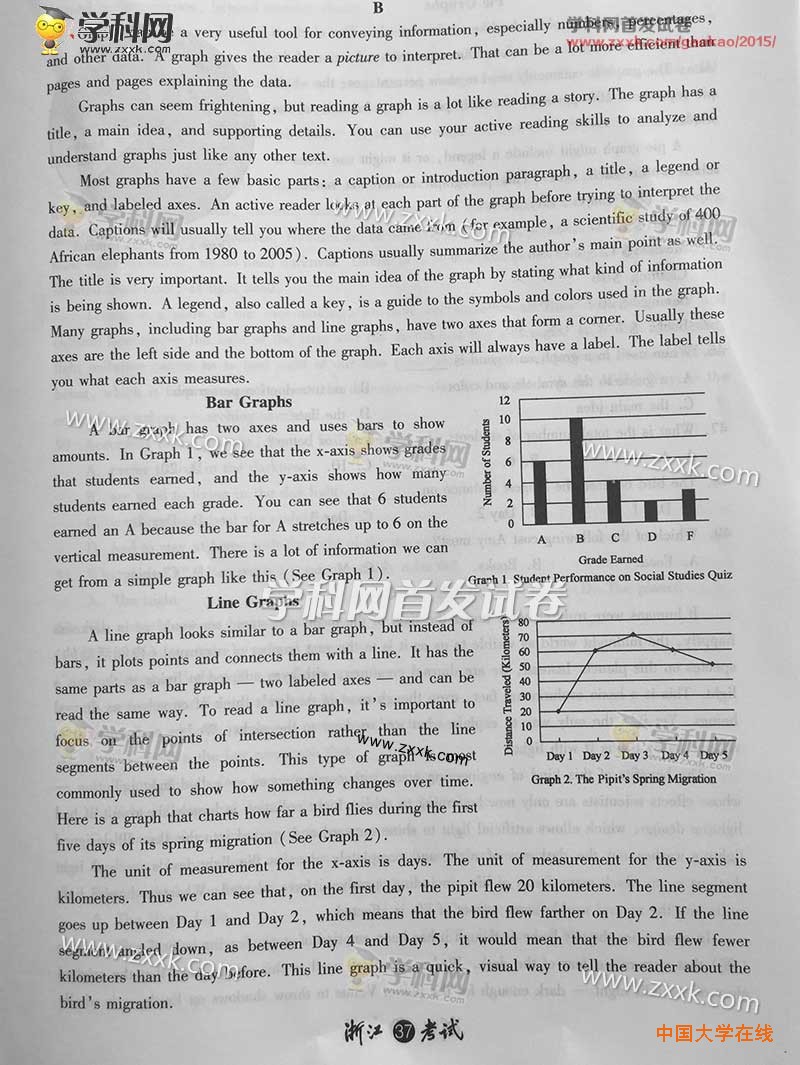 B
a very useful tool for conveying information, especially numbers, percentages,
and other data. A graph gives the reader a picture to interpret. That can be a lot more efficient than
pages and pages explaining the data.
Graphs can seem frightening, but reading a graph is a lot like reading a story. The graph has a
title, a main idea, and supporting details. You can use your active reading skills to analyze and
understand graphs just like any other text.
Most graphs have a few basic parts: a caption or introduction paragraph, a title, a legend or
key, and labeled axes. An active reader looks at each part of the graph before trying to interpret the
data. Captions will usually tell you where the data came from (for example, a scientific study of 400
African elephants from 1980 to 2005). Captions usually summarize the author's main point as well.
The title is very important. It tells you the main idea of the graph by stating what kind of information
is being shown. A legend, also called a key, is a guide to the symbols and colors used in the graph.
Many graphs, including bar graphs and line graphs, have two axes that form a corner. Usually these
axes are the left side and the bottom of the graph. Each axis will always have a label. The label tells
you what each axis measures.
Bar Graphs
A bar graph has two axes and uses bars to show
amounts. In Graph 1, we see that the x-axis shows grades
that students earned, and the y-axis shows how many
students earned each grade. You can see that 6 students
earned an A because the bar for A stretches up to 6 on the
vertical measurement. There is a lot of information we can
get from a simple graph like this (See Graph 1).
Number of Students
12
10
8
6
4
2
0
A B C D F
Grade Earned
Graph 1. Student Performance on Social Studies Quiz
Line Graphs
A line graph looks similar to a bar graph, but instead of
bars, it plots points and connects them with a line. It has the
same parts as a bar graph — two labeled axes — and can be
read the same way. To read a line graph, it's important to
focus on the points of intersection rather than the line
segments between the points. This type of graph is most
commonly used to show how something changes over time.
Here is a graph that charts how far a bird flies during the first
five days of its spring migration (See Graph 2).
Distance Traveled (Kilometers)
80
70
60
50
40
30
20
10
0
Day 1 Day 2 Day 3 Day 4 Day 5
Graph 2. The Pipit's Spring Migration
The unit of measurement for the x-axis is days. The unit of measurement for the y-axis is
kilometers. Thus we can see that, on the first day, the pipit flew 20 kilometers. The line segment
goes up between Day 1 and Day 2, which means that the bird flew farther on Day 2. If the line
segment angled down, as between Day 4 and Day 5, it would mean that the bird flew fewer
kilometers than the day before. This line graph is a quick, visual way to tell the reader about the
bird's migration.
浙江 37 考试
学科网
www.zxxk.com
学科网首发试卷
www.zxxk.com/gaokao/2015/
学科网首发试卷
中国大学在线